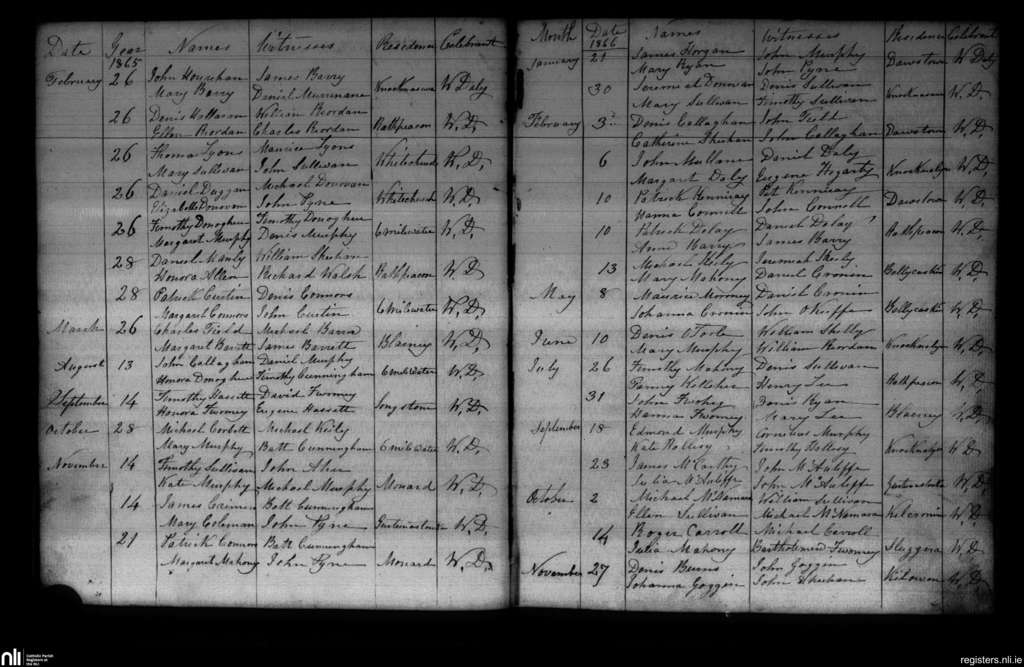 Date Year 1865 Names Witnesses Residence Celebrant
February 26 John Hourihan James Barry
Mary Barry Daniel Murrinane W Daly
26 Denis Hallasan Reordan
Ellen Reordan Charles Reordan Rathpeacon W. D.
26 Thomas Lyons Maurice Lyons
Mary Sullivan John Sullivan Whitechurch W. D.
26 Daniel Duggan Michael Donovan
Elizabeth Donovan John Pyne Whitechurch W. D.
26 Timothy Donoghue Timothy Donoghue
Margaret Murphy Denis Murphy 6milewater W. D.
28 Daniel Manly William Sheehan
Honora Allen Richard Walsh Rathpeacon W. D
28 Patrick Curtin Denis Connors
Margaret Connors John Curtin 6milewater W. D.
March 26 Charles Field Michael Barra
Margaret Barrett James Barrett Blarney W. D.
August 13 John Callaghan Daniel Murphy
Honora Donoghue Timothy Cunningham 6milewater W. D.
September 14 Timothy Hassett David Twomey
Honora Twomey Eugene Hassett Longstone W. D.
October 28 Michael Corbett Michael
Mary Murphy Batt Cunningham 6milewater W. D.
November 14 Timothy Sullivan John Ahern
Kate Murphy Michael Murphy Monard W. D.
14 James Batt Cunningham
Mary Coleman John Pyne W. D.
21 Patrick Connors Batt Cunningham
Margaret Mahony John Pyne Monard W. D.
Month Date 1866 Names Witnesses Residence Celebrant
January 21 James Horgan John Murphy
Mary Ryan John Pyne Dawstown W Daly
30 Jeremiah Donovan Denis Sullivan
Mary Sullivan Timothy Sullivan W. D.
February 3 Denis Callaghan John Field
Catherine Sheehan John Callaghan Dawstown W. D.
6 John Mullane Daniel Daly
Margaret Daly Eugene Hegarty Knocknalyn W. D.
10 Patrick Kenniray Pat Kenniray
Hanna Connell John Connell Dawstown W. D.
10 Patrick Daly Daniel Daly
Anne Barry James Barry Rathpeacon W. D.
13 Michael Jeremiah
Mary Mahony Daniel Cronin Ballycaskin W. D.
May 8 Maurice Daniel Cronin
Johanna Cronin John O'Keeffe Ballycaskin W. D.
June 10 Denis O'Toole William Skelly
Mary Murphy William Reordan Knocknalyn W. D.
July 26 Timothy Mahony Denis Sullivan
Fanny Kelleher Henry Lee Rathpeacon W. D.
31 John Twohey Denis Ryan
Hanna Twomey Mary Lee Blarney W. D.
September 18 Edmond Murphy Cornelius Murphy
Kate Timothy Knocknalyn W D
23 James McCarthy John McAuliffe
Julia McAuliffe John McAuliffe W. D.
October 2 Michael McNamara William Sullivan
Ellen Sullivan Michael McNamara Kilcronin W. D.
14 Roger Carroll Michael Carroll
Julia Mahony Bartholomew Twomey Sluggera W. D
November 27 Denis Burns John Goggin
Johanna Goggin John Sheehan Kilowen W. D.
nli Catholic Parish Registers at the NLI
registers.nli.ie